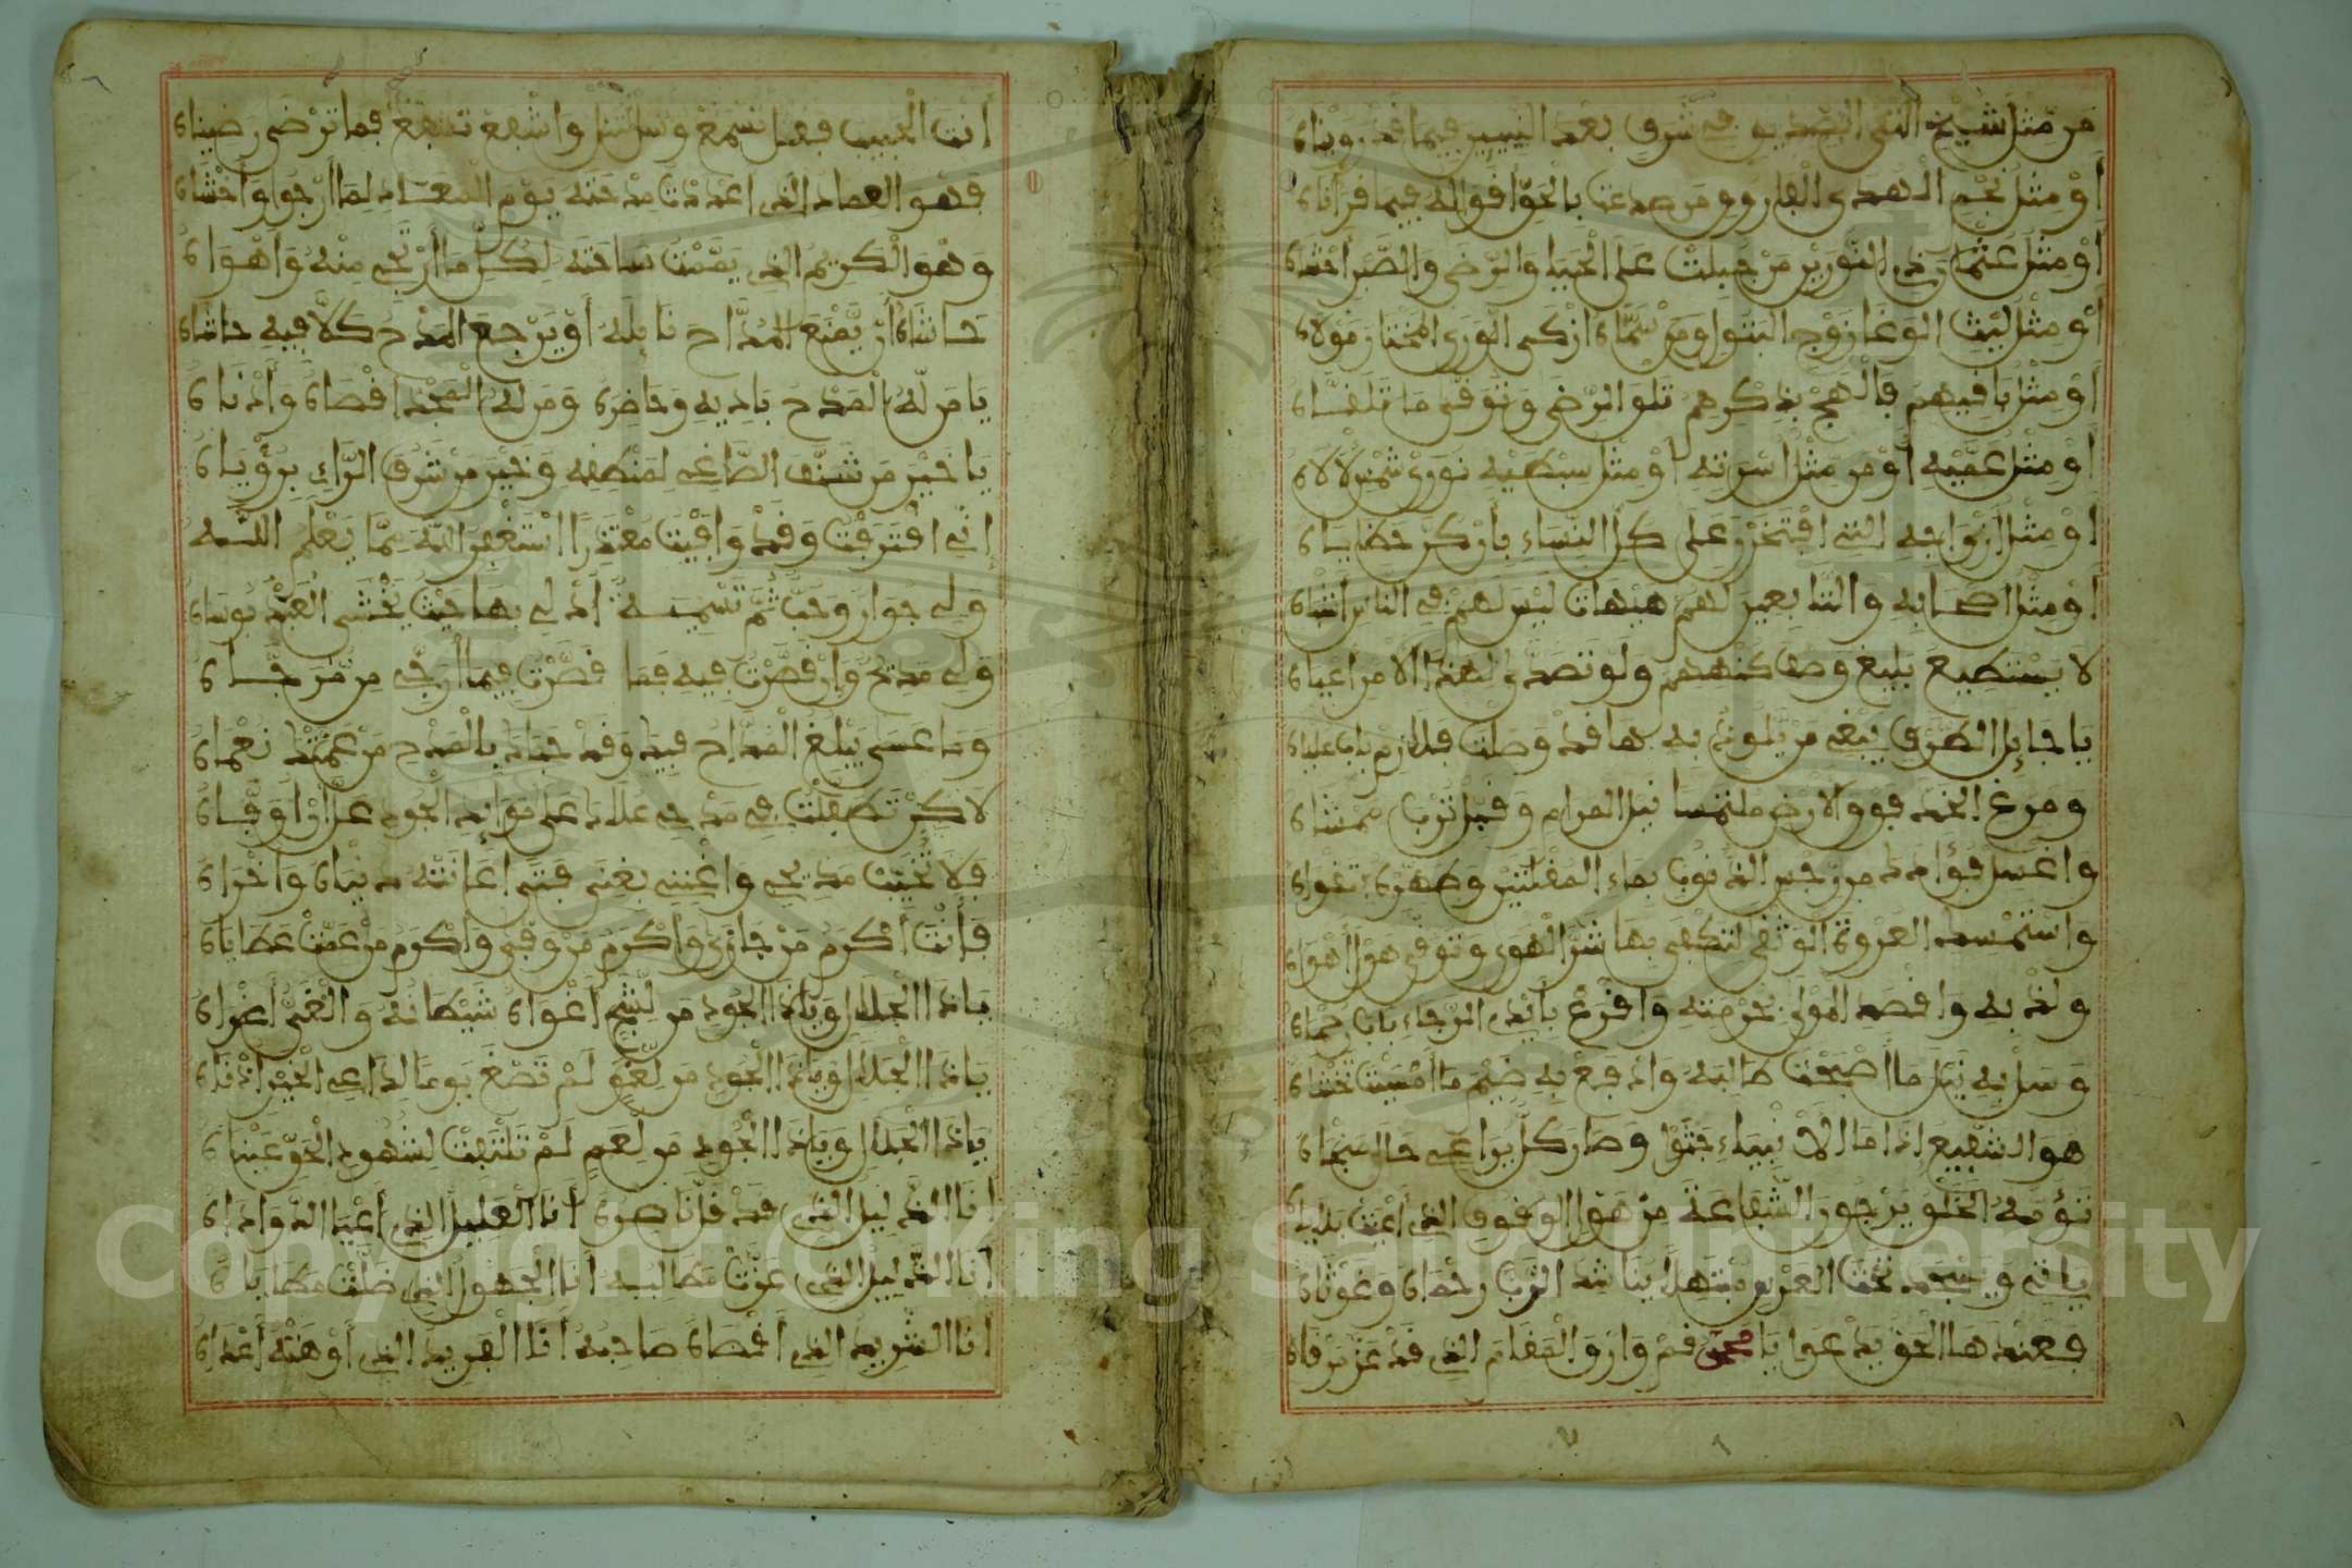 من مثل شيخ التقى الصديق في شرف بعد النبيين فيما قد رويناه
أو مثل نجم الهدى الفاروق من صدعت بالحق أقواله فيما قرأناه
أو مثل عثمان ذي النورين من جبلت على الحيا والرضى والصبر أحشاه
أو مثل ليث الوغا زوج البتول ومن سماه أزكى الورى المختار مولاه
أو مثل باقيهم فالهج بذكرهم تلو الرضى وتوق ما تلقاه
أو مثل عميه أو من مثل أسرته أو مثل سبطيه نوري شمس لألاه
أو مثل أزواجه التي افتخرن على كل النساء بأن كن حظاياه
أو مثل أصحابه والتابعين لهم هيهات ليس لهم في الناس أشباه
لا يستطيع بليغ وصف كنههم ولو تصدى لهذا الأمر أعياه
يا جايل الطرف يبغي من يلوذ به ها قد وصلت فلازم باب علياه
ومرغ الخد فوق الأرض ملتمسا نيل المرام وقبل ترب ممشاه
واغسل فؤادك من رجس الذنوب بماء المقلتين وطهره بتقواه
واستمسك العروة الوثقى لتكفى بها شر الهوى وتوقى هول أهواه
ولذ به واقصد المولى بحرمته واقرع بأيدي الرجاء باب رحماه
وسل به نيل ما أصبحت طالبه وادفع به ضيم ما أمسيت تخشاه
هو الشفيع إذا ما الأنبياء جثوا وصار كل يراعي حال عقباه
تؤمه الخلق يرجون الشفاعة من هول الوقوف الذي أعيت بلاياه
يأتي ويسجد تحت العرش مبتهلا يناشد الرب رحماه وغوثاه
فعندها الحق يدعو يا محمد قم وارق المقام الذي قد عز مرقاه
أنت الحبيب فقل نسمع وسل تنل واشفع تشفع فما ترضى رضيناه
فهو العماد الذي أعددت مدحته يوم المعاد لما أرجو وأخشاه
وهو الكريم الذي يممت ساحته لكل ما أرتجي منه وأهواه
حاشاه أن يمنع المداح نايله أو يرجع المدح كلا فيه حاشاه
يا من له المدح باديه وحاضره ومن له المجد أقصاه وأدناه
يا خير من شنف الصاغي لمنطقه وخير من شرف الراي برؤياه
إني اقترفت وقد وافيت معتذرا أستغفر الله مما يعلم الله
ولي جوار وحب ثم تسمية أدلي بها حيث يخشى العبد بوساه
ولي مديح وإن قصرت فيه فما قصرت فيما أرجي من مرجاه
وما عسى يبلغ المداح فيه وقد جاد بالمدح من عمتك نعماه
لاكن تطفلت في مدحي علاك على موايد الجود عل أن أوفاه
فلا تخيب مديحي واغنني بغنى فتى إعانته دنياه وأخراه
فأنت أكرم من جازى وأكرم من وفى وأكرم من عمت عطاياه
يا ذا الجلال ويا ذا الجود من لشج أغواه شيطانه والغي أغراه
يا ذا الجلال ويا ذا الجود من لغو لم تصغ يوما لداعي الخير أذناه
يا ذا الجلال ويا ذا الجود من لعم لم تلتفت لشهود الحق عيناه
أنا الذليل الذي قد قل ناصره أنا العليل الذي أعيا الدواداه
أنا الذليل الذي عزت مطالبه أنا الجهول الذي ضلت مطاياه
أنا الشريد الذي أقصاه صاحبه أنا الفريد الذي أوهنته أعداه
Copyright © King Saud University